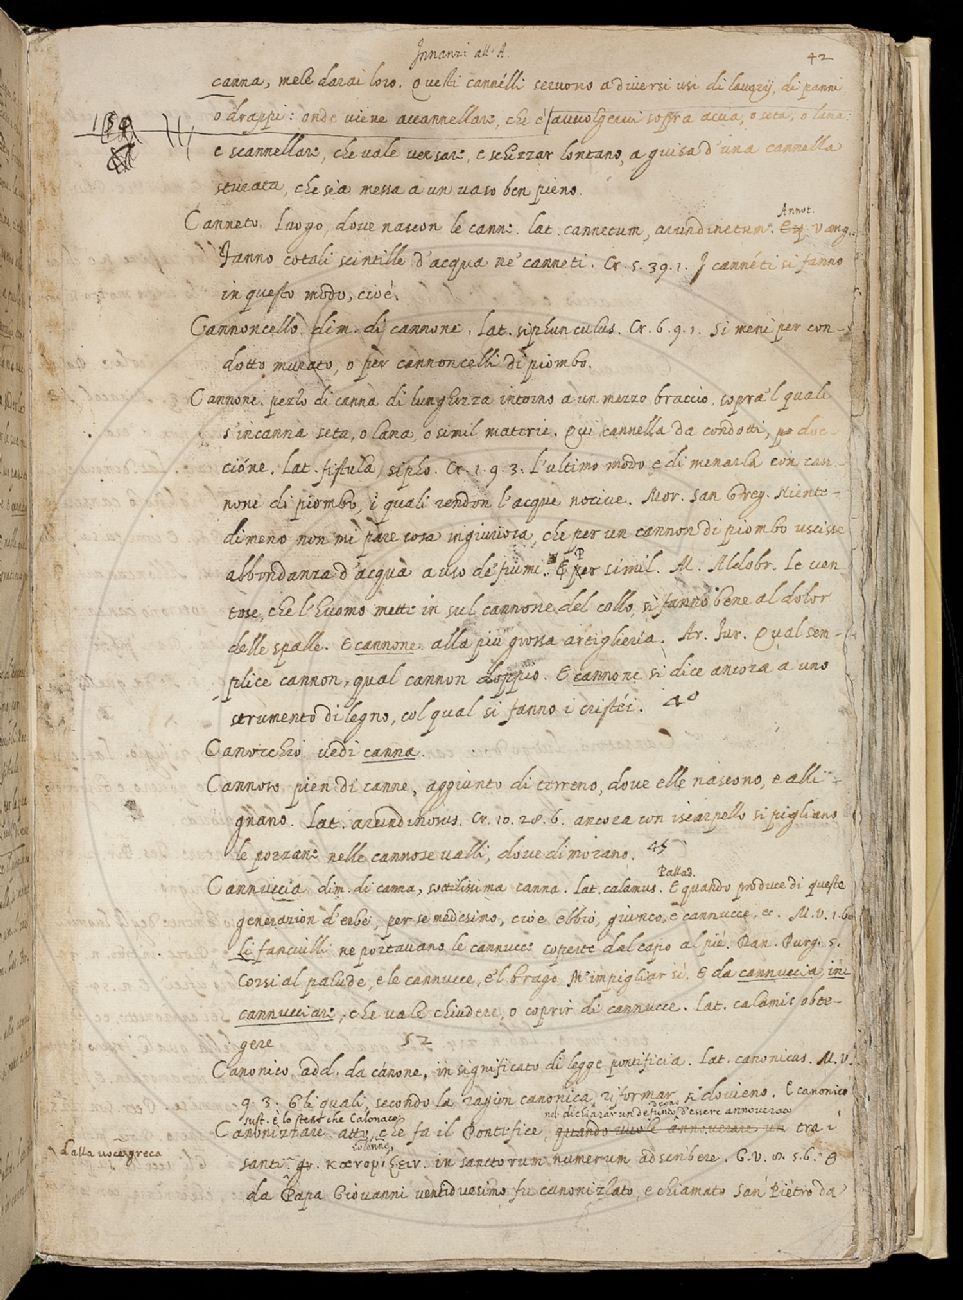 Innanzi all'A. 42
canna, mele darai loro. Questi cannelli servono a diversi usi di lavorij, di panni
o drappi: onde viene accannellare, che è l'avvolgervi sopra accia, o seta, o lana:
e scannellare, che vale versare, e schizzar lontano, a guisa d'una cannella
sturata, che sia messa a un vaso ben pieno.
Canneto. Luogo, dove nascon le canne. lat. cannetum, arundinetum. Annot. Vang.
Fanno cotali scintille d'acqua ne' canneti. Cr. 5. 39. 1. I cannéti si fanno
in questo modo, cioè.
Cannoncello. dim. di cannone. Lat. siphunculus. Cr. 6. 9. 1. Si meni per con-
dotto murato, o per cannoncelli di piombo.
Cannone. pezzo di canna di lunghezza intorno a un mezzo braccio, sopra 'l quale
s'incanna seta, o lana, o simil materie. Qui cannella da condotti, per doc
cióne. Lat. fistula, sipho. Cr. 1. 9. 3. L'ultimo modo è di menarla con can-
noni di piombo, i quali rendon l'acque nocive. Mor. San Greg. Niente-
dimeno non mi pare cosa ingiuriosa, che per un cannon di piombo uscisse
abbondanza d'acqua a uso de' fiumi. E per simil. M. Aldobr. Le ven
tose, che l'huomo mette in sul cannone del collo, si fanno bene al dolor
delle spalle. E cannone alla più grossa artiglieria. Ar. Fur. Qual sem-
plice cannon, qual cannon doppio. E cannone si dice ancora a uno
strumento di legno, col qual si fanno i cristéi. 40
Canocchio vedi canna.
Cannoso pien di canne, aggiunto di terreno, dove elle nascono, e alli-
gnano. Lat. arundinosus. Cr. 10. 28. 6. ancora con iscarpello si pigliano
le pozzane nelle cannose valli, dove dimorano. 45
Pallad.
Cannuccia dim. di canna, sottilissima canna. Lat. calamus. E quando produce di queste
generazion d'erbe, per se medesimo, cioè ebbio, giunco, e cannucce, ec. M. V. 1. 60
Li fanciulli ne portavano le cannucce coperte dal capo al piè. Dan. Purg. 5.
Corsi al palude, e le cannucce, e 'l brago M'impigliar sì. E da cannuccia inc
cannucciare, che vale chiudere, o coprir di cannucce. Lat. calamis obte-
gere 52
Canonico add. da cánone, in significato di legge pontificia. Lat. canonicus. M. V.
9. 3. Gli quali, secondo la ragion canonica, riformar si dovieno. E canonico
sust. è lo stesso che Calonaco
nel dichiarar un defunto, degno d'essere annoverato
Canonizzare atto, che fa il Pontefice, quando vuole annoverare un tra i
Dalla voce greca
santi. in sanctorum numerum adscribere. G. V. E
da Papa Giovanni ventiduesimo fu canonizzato, e chiamato San Pietro da